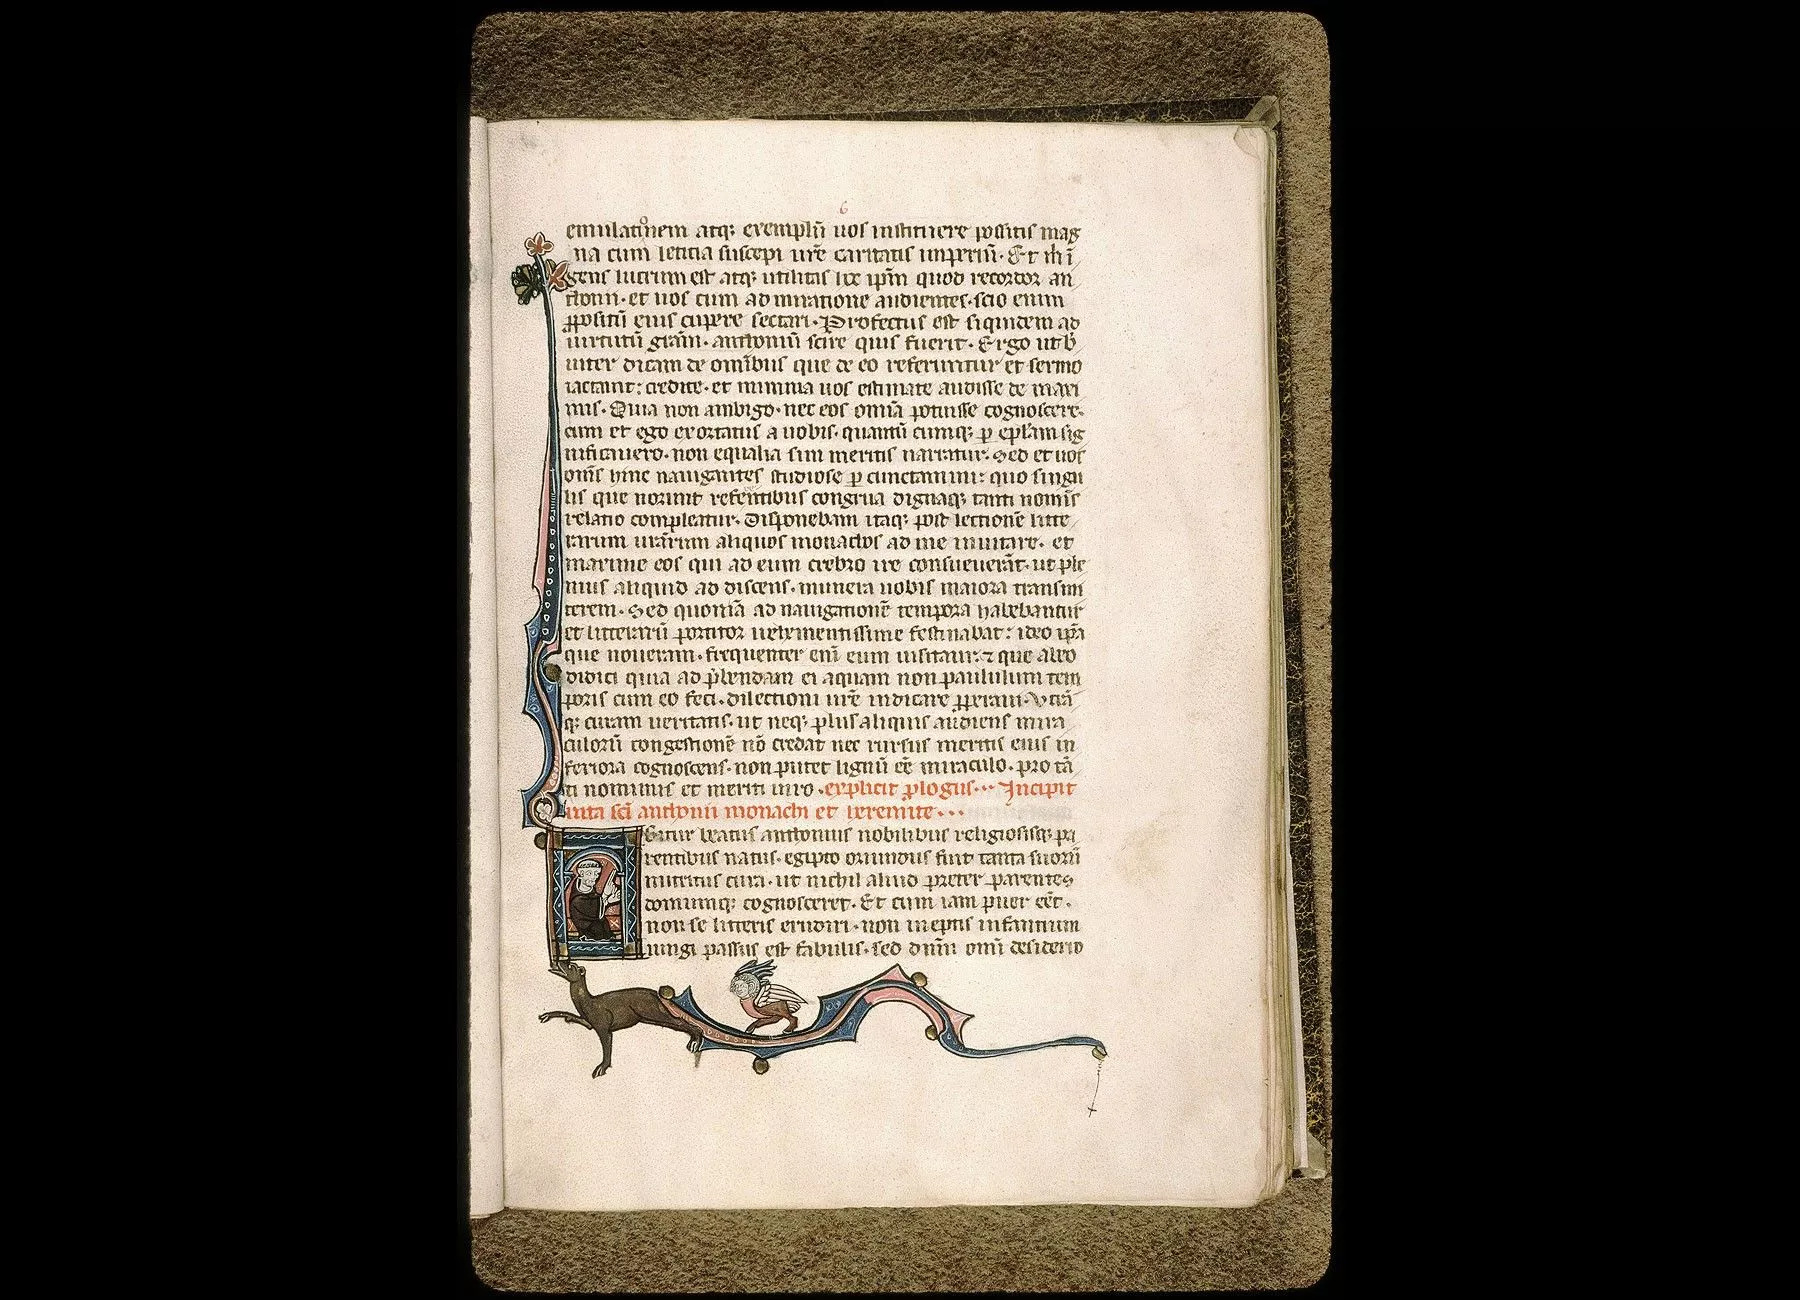 6
emulatiōnem atq; exemplū uos instituere positis mag
na cum leticia suscepi ur̄e caritatis imperiū. Et m̄ i
gens lucrum est atq; utilitas hc̄ ip̄m quod recordor an
thonii. et uos cum ad miratione audientes. scio enim
ꝓpositū eius cupere sectari. Profectus est siquidem ad
uirtutū grām. anthoniū scire quis fuerit. Ergo ut b̄
uiter dicam de omībus que de eo referuntur et sermo
iactant: credite. et minima uos estimate audisse de maxi
mis. Quia non ambigo. nec eos omīa potuisse cognoscere.
cum et ego exortatus a uobis. quantū cumq; ꝑ epl̄am sig
nificauero. non equalia sim meritis narratur. Sed et uos
om̄s hinc nauigantes studiose ꝑ cunctamini: quo singu
lis que norunt referentibus congrua dignaq; tanti nomīs
relatio compleatur. Disponebam itaq; post lectionē litte
rarum urārum aliquos monachos ad me inuitare. et
maxime eos qui ad eum crebro ire consueuerāt. ut ple
nius aliquid ad discens. munera uobis maiora transmi
terem. Sed quoniā ad nauigationē tempora habebantur
et litterarū portitor uehementissime festinabat: ideo ip̄a
que noueram. frequenter enī eum uisitaui: ⁊ que abeo
didici quia ad p̄bendam ei aquam non paululum tem
poris cum eo feci. dilectioni ur̄e indicare ꝓperaui. Utrā
q; curam ueritatis. ut neq; plus aliquis audiens mira
culorū congestionē nō credat nec rursus meritis eius in
feriora cognoscens. non putet lignū eē miraculo. pro tā
ti nominis et meriti uiro. explicit ꝓlogus... Incipit
uita sc̄i anthonii monachi et heremite...
Gitur beatus anthonius nobilibus religiosisq; pa
rentibus natus. egipto oriundus fuit tanta suorū
nutritus cura. ut nichil aliud preter parentes
domumq; cognosceret. Et cum iam puer eēt.
non se litteris erudiri. non ineptis infantium
iungi passus est fabulis. sed dn̄m omi desiderio